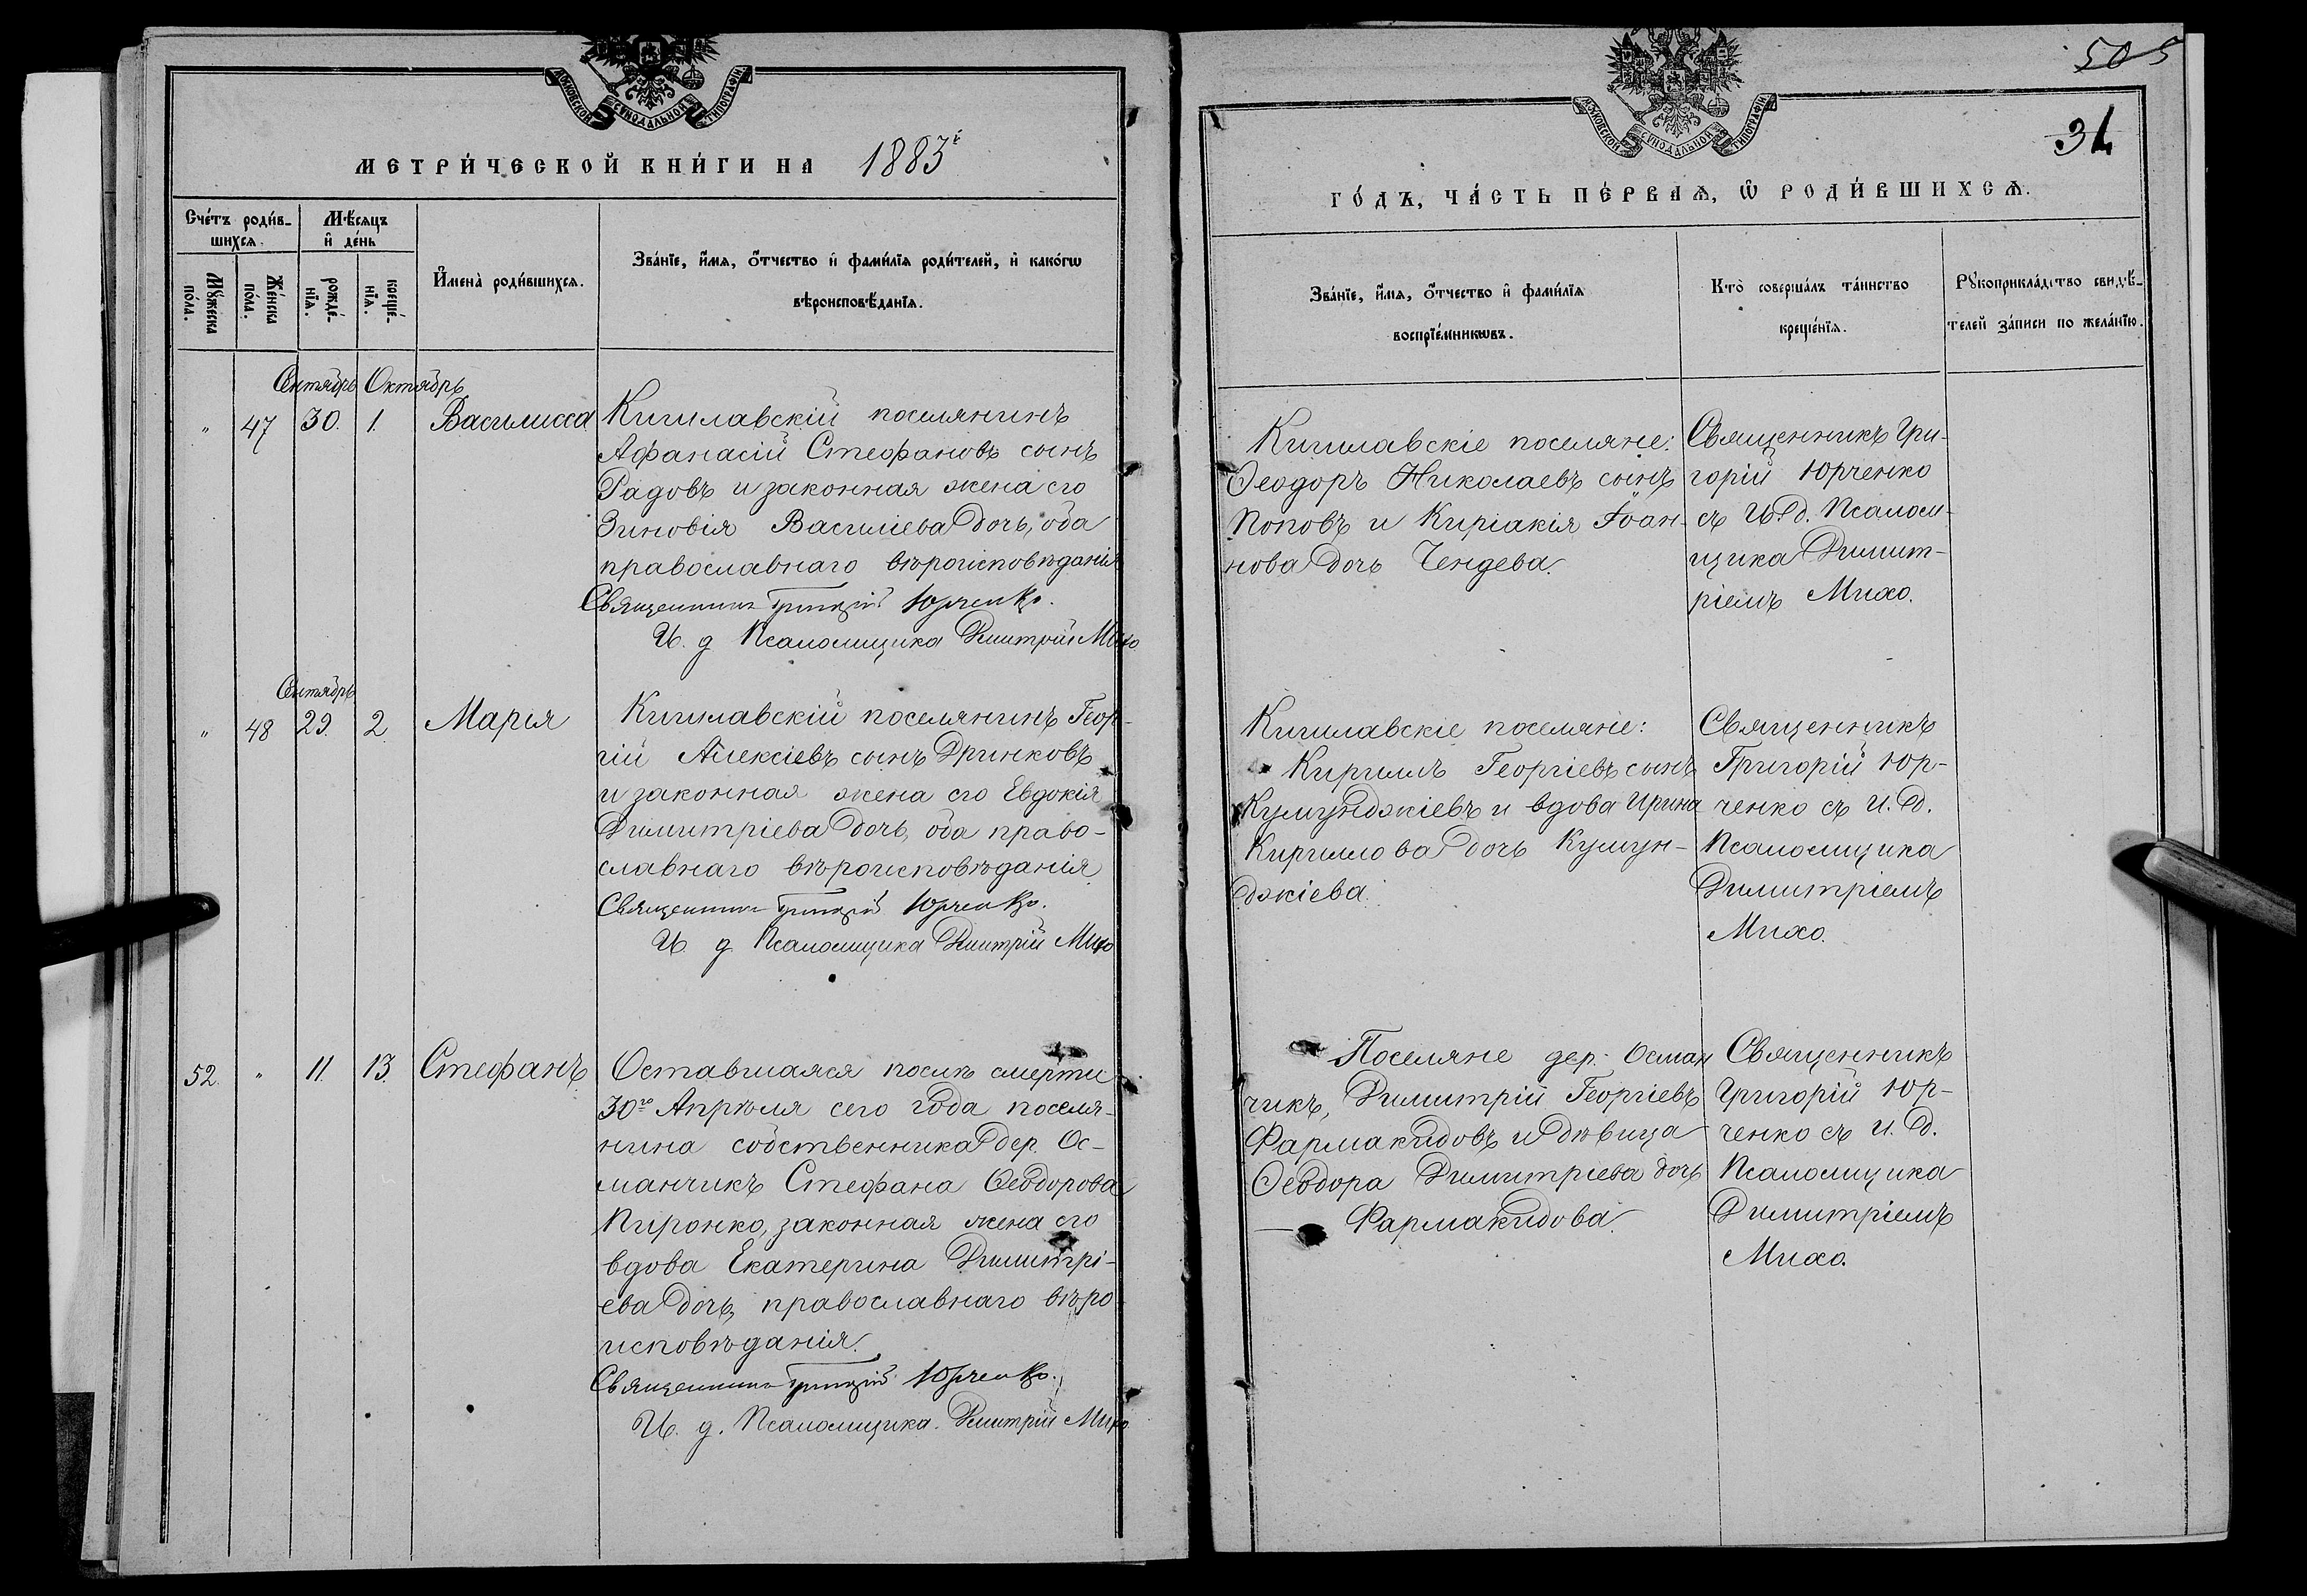 МОСКОВСКОЙ СѴНОДАЛЬНОЙ ТИПОГРАФІИ
МЕТРИ́ЧЕСКОЙ КНИ́ГИ НА 1883й
Сче́тъ роди́в-
шихсѧ.
Мѣ́сяцъ
и҆ де́нь
Мꙋ́жеска
по́ла.
Же́нска
по́ла.
рожде́-
нїѧ.
креще́-
нїѧ.
И҆мена̀ роди́вшихсѧ.
Зва́нїе, и҆́мѧ, ѻ҆́тчество и҆ фами́лїѧ роди́телей, и҆ како́гѡ
вѣроисповѣ́данїѧ.
Сентябрь Октябрь
" 47 30. 1. Василисса
Кишлавскій поселянинъ
Афанасій Стефановъ сынъ
Радовъ и законная жена его
Зиновія Василіева дочь, оба
православнаго вѣроисповѣданія
Священникъ Григорій Юрченко.
И. д Псаломщика Димитрій Михо
Сентябрь
" 48 29. 2. Марія
Кишлавскій поселянинъ Геор-
гій Алексіевъ сынъ Дринковъ
и законная жена его Евдокія
Димитріева дочь, оба право-
славнаго вѣроисповѣданія
Священникъ Григорій Юрченко.
И д Псаломщика Димитрій Михо
52. " 11. 13. Стефанъ
Оставшаяся послѣ смерти
30го Апрѣля сего года поселя-
нина собственника дер. Ос-
манчикъ Стефана Ѳеодорова
Пиронко, законная жена его
вдова Екатерина Димитрі-
ева дочь, православнаго вѣро-
исповѣданія.
Священникъ Григорій Юрченко.
И. д. Псаломщика. Димитрій Михо
505
МОСКОВСКОЙ СѴНОДАЛЬНОЙ ТИПОГРАФІИ
ГО́ДЪ, ЧА́СТЬ ПЕ́РВАѦ, Ѡ҆ РОДИ́ВШИХСѦ.
Зва́нїе, и҆́мѧ, ѻ҆́тчество и҆ фами́лїѧ
воспрїе́мникѡвъ.
Кто̀ соверша́лъ та́инство
креще́нїѧ.
Рꙋкоприкла́дство свидѣ́-
телей за́писи по жела́нїю.
Кишлавскіе поселяне:
Ѳеодоръ Николаевъ сынъ
Поповъ и Киріакія Іоан-
нова дочь Чендева.
Священникъ Гри-
горій Юрченко
съ И. д. Псалом-
щика Димит-
ріемъ Михо.
Кишлавскіе поселяне:
Кириллъ Георгіевъ сынъ
Куюмджіевъ и вдова Ирина
Кириллова дочь Куюм-
джіева.
Священникъ
Григорій Юр-
ченко съ И. д.
Псаломщика
Димитріемъ
Михо.
Поселяне дер. Осман
чикъ, Димитрій Георгіевъ
Фармакидовъ и дѣвица
Ѳеодора Димитріева дочь
Фармакидова.
Священникъ
Григорій Юр-
ченко съ И. д.
Псаломщика
Димитріемъ
Михо.